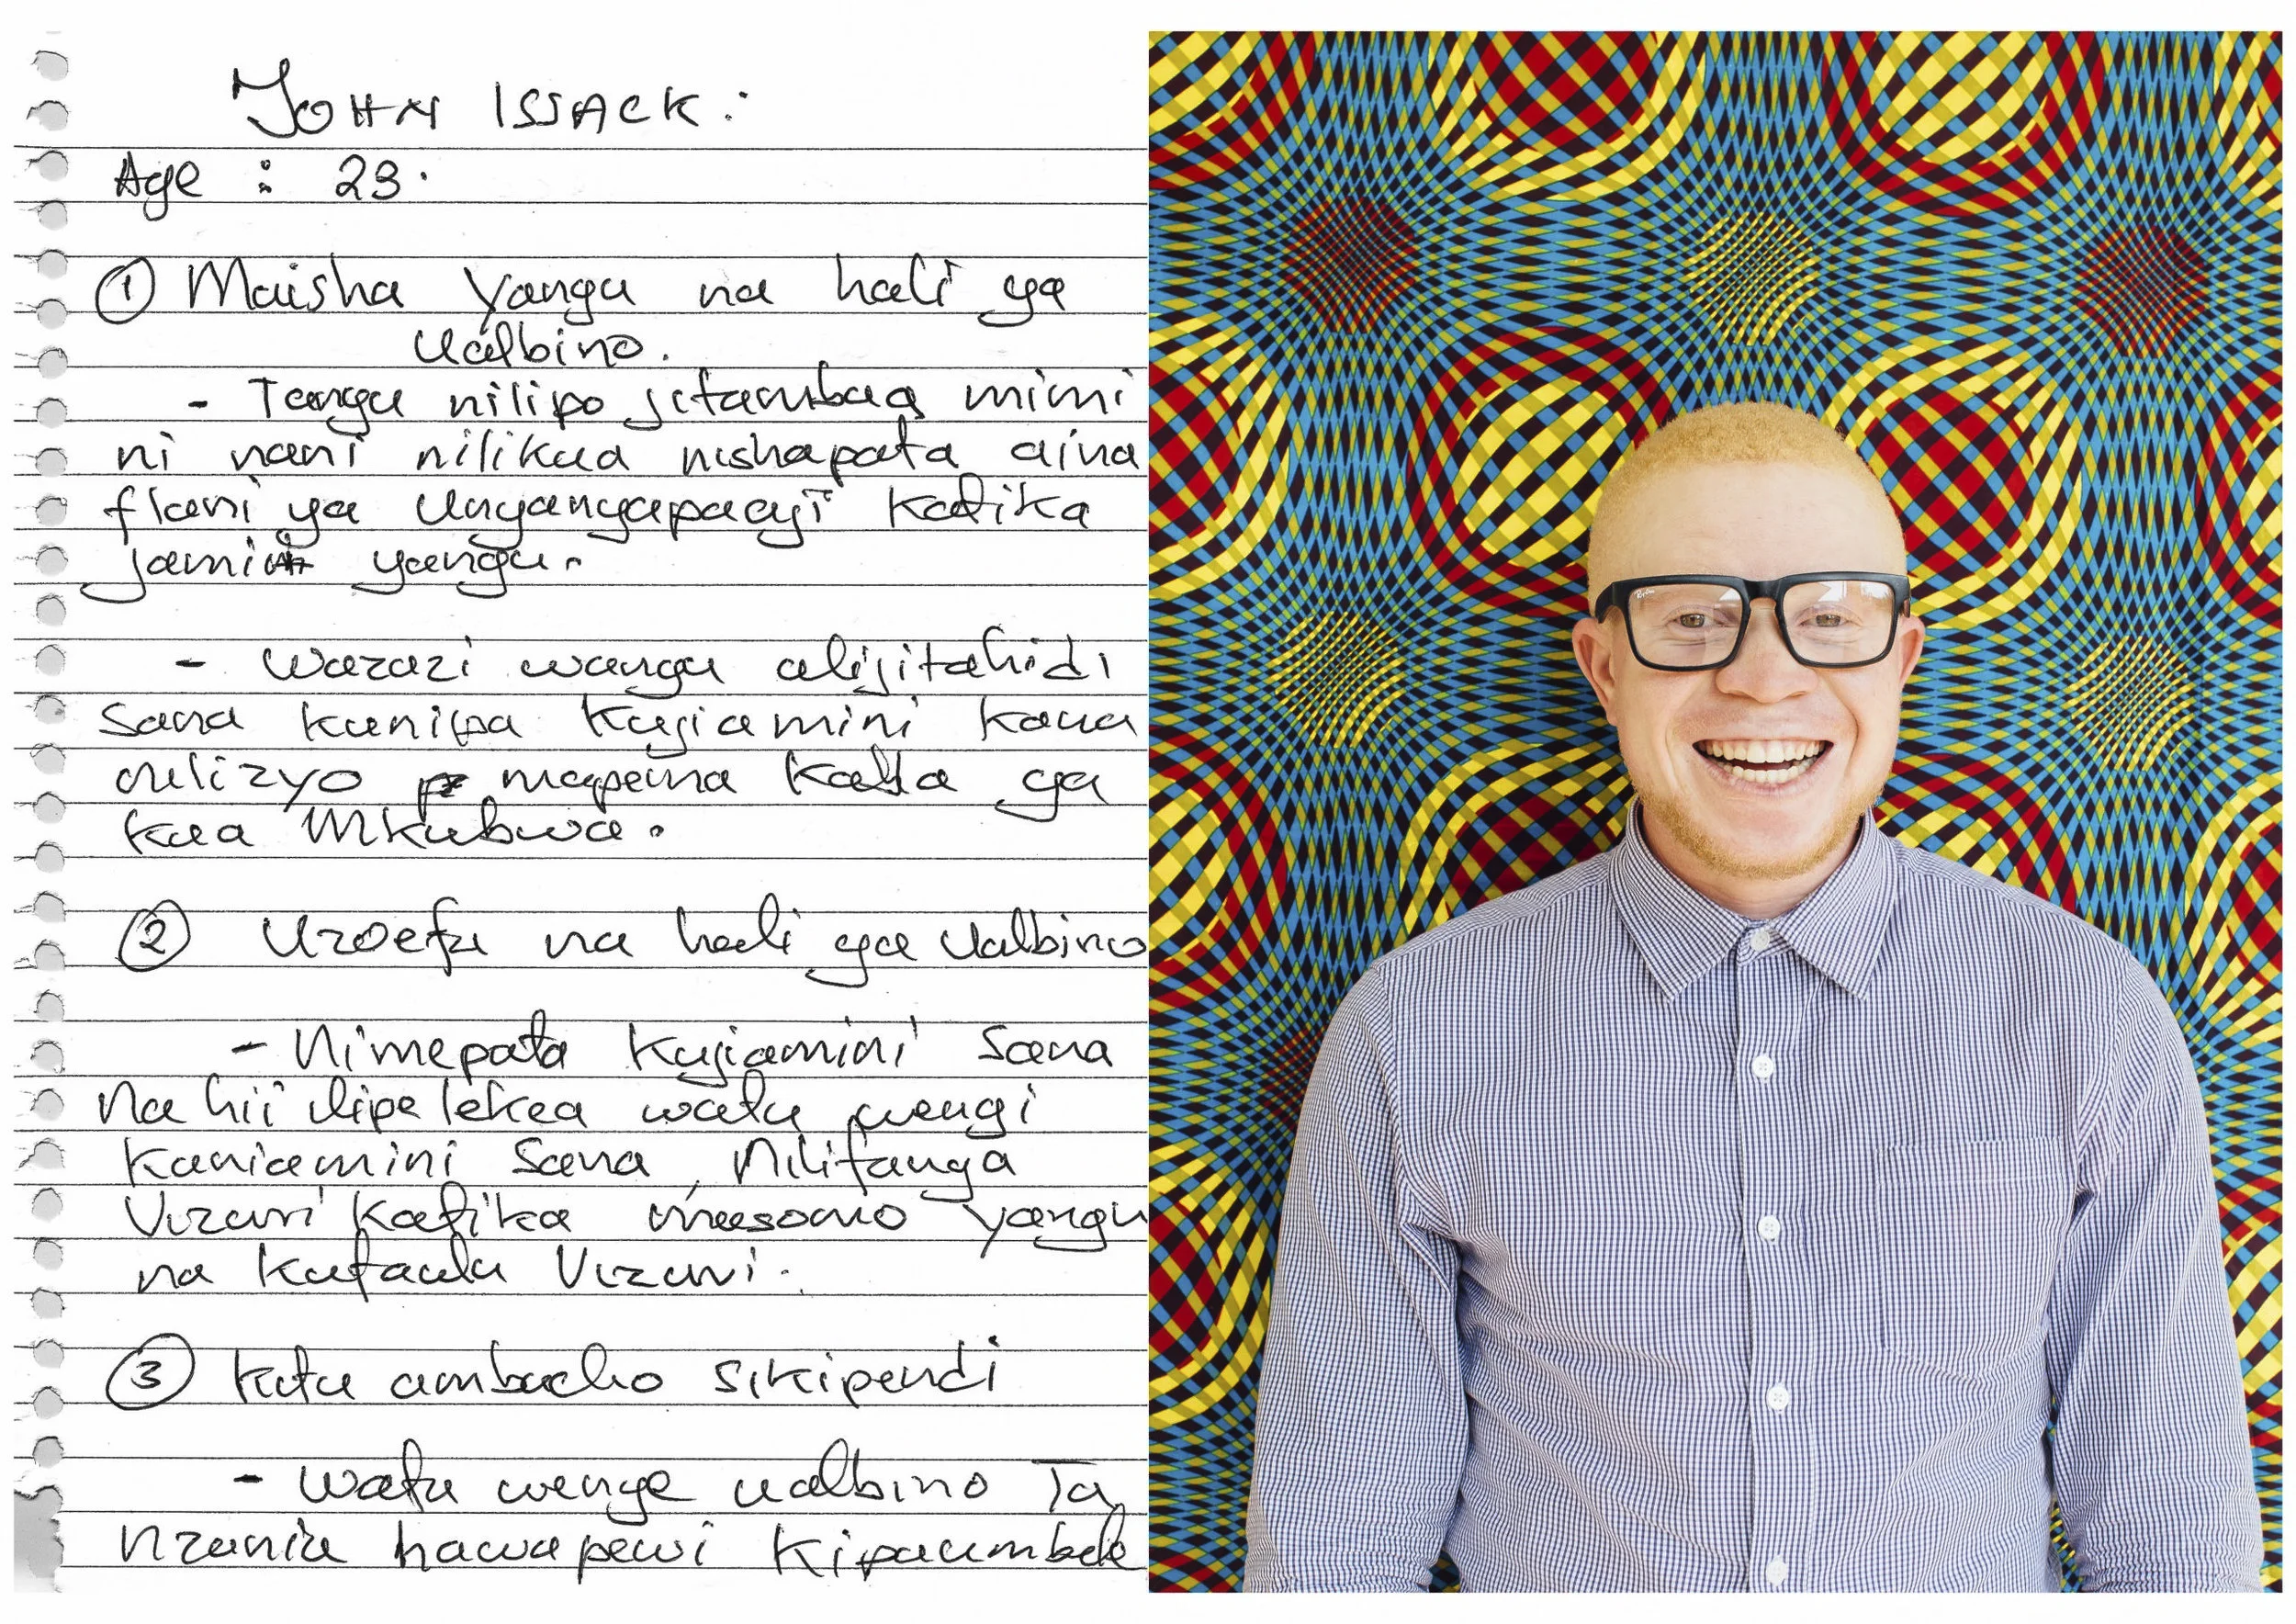 JOHN ISSACK:
Age : 23.
① Maisha Yangu na hali ya
Ualbino.
- Tangu nilipo jitambua mimi
ni nani nilikua nishapata aina
flani ya Unyanyapaaji Katika
jamii yangu.
- Wazazi wangu alijitahidi
Sana kunipa Kujiamini Kaua
mapema Kabla ya
Kua Mkubwa.
② Uzoefu na hali ya Ualbino
- Nimepata Kujiamini Sana
Na hii ilipelekea watu wengi
Kaniamini Sana, Nilifanya
Vizuri Katika masomo yangu
na Kufaulu Vizuri.
③ Kitu ambacho Sikipendi
- Watu wenye ualbino Ta
nzania hawapewi Kipaumbele
Ray-Ban